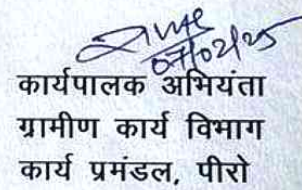 07/02/25
कार्यपालक अभियंता
ग्रामीण कार्य विभाग
कार्य प्रमंडल, पीरो